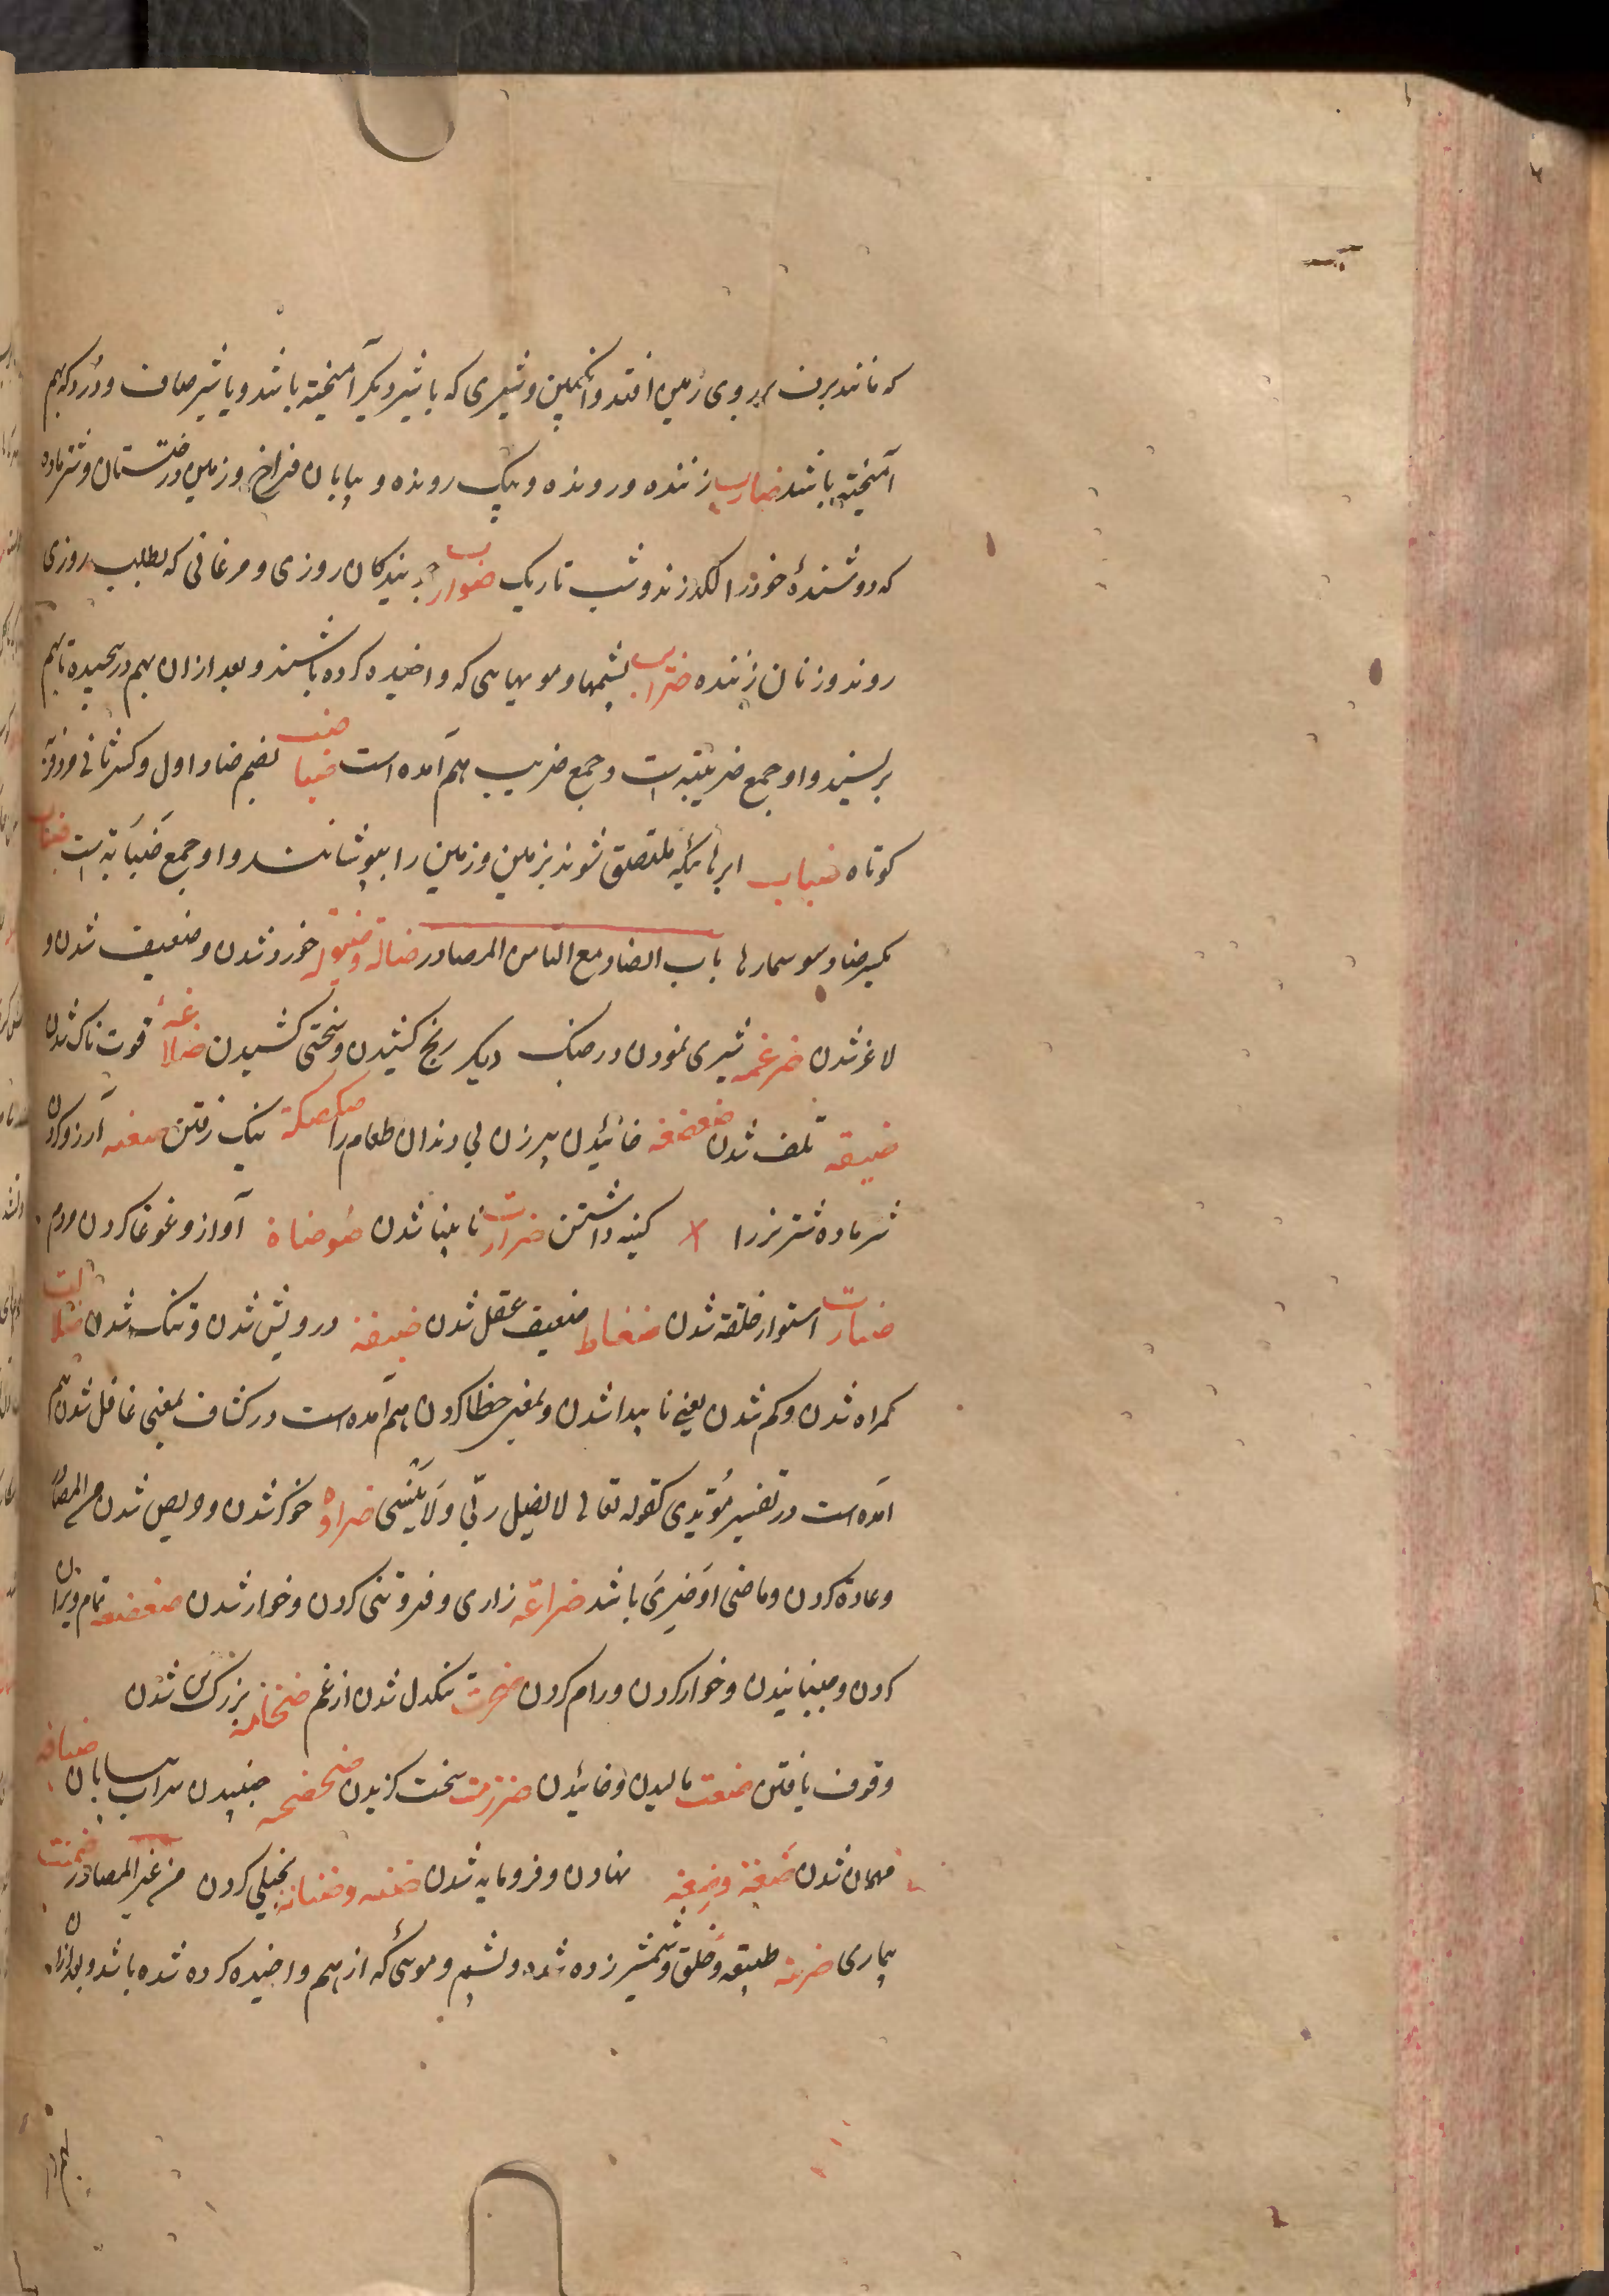 که مانند برف بر روی زمین افتد وانکبین وشیری که باشیر دیکر آمیخته باشد ویا شیر صاف ودرد که بهم
آمیخته باشد ضارب زننده ورونده وپیک رونده وبیابان فراخ وزمین درختستان وشتر ماده
که دوشندهٔ خود را لکد زند وشب تاریک ضوارب جویندکان روزی ومرغانی که بطلب روزی
روند وزنان زننده ضراب پشمها ومویهایی که واخیده کرده باشند وبعد ازان بهم درپیچیده تا بهم
بریسند واو جمع ضریبته است وجمع ضریب هم آمده است ضباضب بضم ضاد اول وکسر ثانی مرد فربه
کوتاه ضباب ابرهائیکه ملتصق شوند بزمین وزمین را بپوشانند واو جمع ضبابة است ضباب
بکسر ضاد سوسمارها باب الضاد مع التا من المصادر ضالة وضئولة خورد شدن وضعیف شدن و
لاغر شدن ضرغمه شیری نمودن در جنک دیکر رنج کشیدن وسختی کشیدن ضلاعة قوت ناک شدن
ضیعة تلف شدن ضغضغه خائیدن پیر زن بی دندان طعام را ضکضکة نیک رفتن ضبعه آرزو کردن
شتر ماده شتر نر را کینه داشتن ضرارت نابینا شدن ضوضاة آواز وغوغا کردن مردم
ضبارت استوار خلقة شدن ضفاطة ضعیف عقل شدن ضیقة درویش شدن وتنک شدن ضلالت
کمراه شدن وکم شدن یعنی ناپیدا شدن وبمعنی خطا کردن هم آمده است در کشاف بمعنی غافل شدن هم
آمده است در تفسیر کقوله تعالی لا یضل ربی ولا ینسی ضراوة خوکر شدن وحریص شدن من المصادر
وعادة کردن وماضی او ضری باشد ضراعة زاری وفروتنی کردن وخوار شدن ضعضعه تمام ویران
کردن وجنبانیدن وخوار کردن ورام کردن ضجرت تنکدل شدن از غم ضخامة بزرک تن شدن
وقوف یافتن ضغت مالیدن وخائیدن ضرزمت سخت کزیدن ضحضحه جنبیدن سراب بیابان ضیافة
مهمان شدن ضعة وضعة نهادن وفرومایه شدن ضنه وضنانة بخیلی کردن من غیر المصادر ضمنت
بیماری ضریبة طبیعة وخلق وشمشیر زده شده وپشم وموئی که از هم واخیده کرده شده باشد وبعد ازان
بهم در